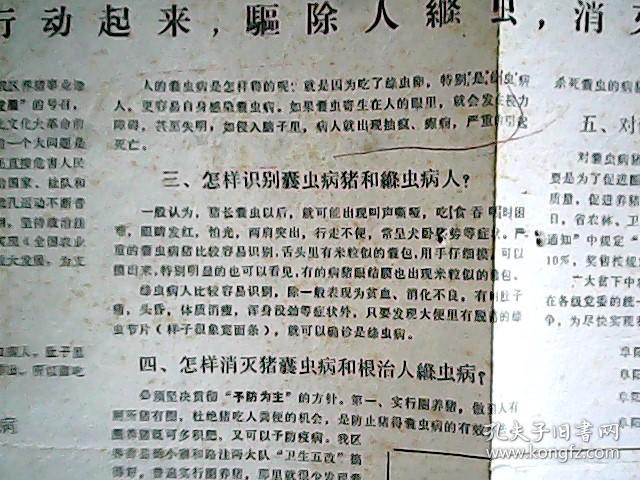 行动起来，驱除人縧虫，消灭
人的囊虫病是怎样得的呢？就是因为吃了绦虫卵，特别是绦虫病
人，更容易自身感染囊虫病。如果囊虫寄生在人的眼里，就会发生视力
障碍，甚至失明，如侵入脑子里，病人就出现抽疯、癫痫，严重的引起
死亡。
三、怎样识别囊虫病猪和縧虫病人？
一般认为，猪长囊虫以后，就可能出现叫声嘶哑，吃食吞咽时困
难，眼睛发红，怕光，两肩突出，行走不便，常呈犬卧姿势等症状。严
重的囊虫病猪比较容易识别，舌头里有米粒似的囊包，用手仔细摸，可以
摸出来，特别明显的也可以看见，有的病猪眼结膜也出现米粒似的囊包。
绦虫病人比较容易识别，除一般表现为贫血、消化不良，有时肚子
痛，头昏，体质消瘦，浑身没劲等症状外，只要发现大便里有脱落的绦
虫节片（样子很象宽面条），就可以确诊是绦虫病。
四、怎样消灭猪囊虫病和根治人縧虫病？
必须坚决贯彻“予防为主”的方针。第一、实行圈养猪，做到人有
厕所猪有圈，杜绝猪吃人粪便的机会，是防止猪得囊虫病的有效
圈养猪既可多积肥，又可以予防疫病。我区
大队“卫生五改”搞
得好，普遍实行圈养猪，那里就很少发现
我区养猪事业
的号召，
文化大革命前
一个大问题是
直接危害人民
给国家、社队和
孔运动不断普
，坚持政治挂
实现4全国农业
大发展，为支
病人，肚子里
病
杀死囊虫的病猪
五、对
对囊虫病猪
要是为了促进圈
质量，促进养猪
日，省农林、卫
通知”中规定
10％，奖售按规
广大贫下中农
在各级党委的统
争，为尽快实现
阜阳
阜阳
阜阳
孔夫子旧书网